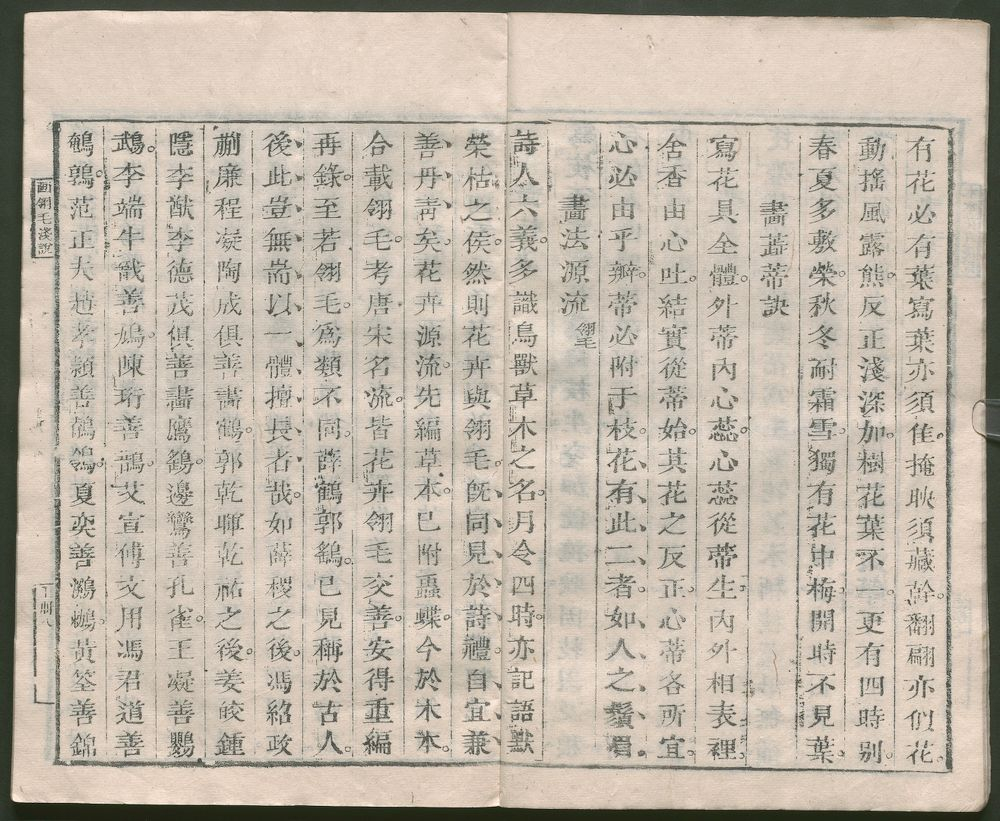 有花必有葉寫葉亦須佳。掩映須藏幹翻翩亦似花。
動搖風露熊。反正淺深加。樹花葉不等。更有四時別。
春夏多敷榮。秋冬耐霜雪。獨有花中梅開時不見葉。
畫蕋蒂訣
寫花具全體。外蒂內心蕊。心蕊從蒂生。內外相表裡
舍香由心吐。結實從蒂始。其花之反正。心蒂各所宜。
心必由乎瓣。蒂必附于枝。花有此二者。如人之鬚眉
畫法源流 翎毛
詩人六義。多識鳥獸草木之名。月令四時。亦記語獸
榮枯之侯。然則花卉與翎毛。旣同見於詩禮。自宜兼
善丹靑矣。花卉源流。先編草本。已附蟲蝶。今於木本。
合載翎毛。考唐宋名流。皆花卉翎毛交善。安得重編
再錄。至若翎毛。爲類不同。薛鶴郭鷂。已見稱於古人。
後此豈無耑以一體擅長者哉。如薛稷之後。馮紹政
蒯廉程凝陶成俱善畵鶴。郭乾暉乾祐之後。姜皎鍾
隱李猷李德茂俱善畵鷹鷂。邊鸞善孔雀。王凝善鸚
鵡。李端牛戩善鳩。陳珩善鵲。艾宣傅文用馮君道善
鵪鶉。范正夫趙孝頴善鶺鴒。夏奕善鸂鶒。黃筌善錦
画翎毛淺說
丁冊八